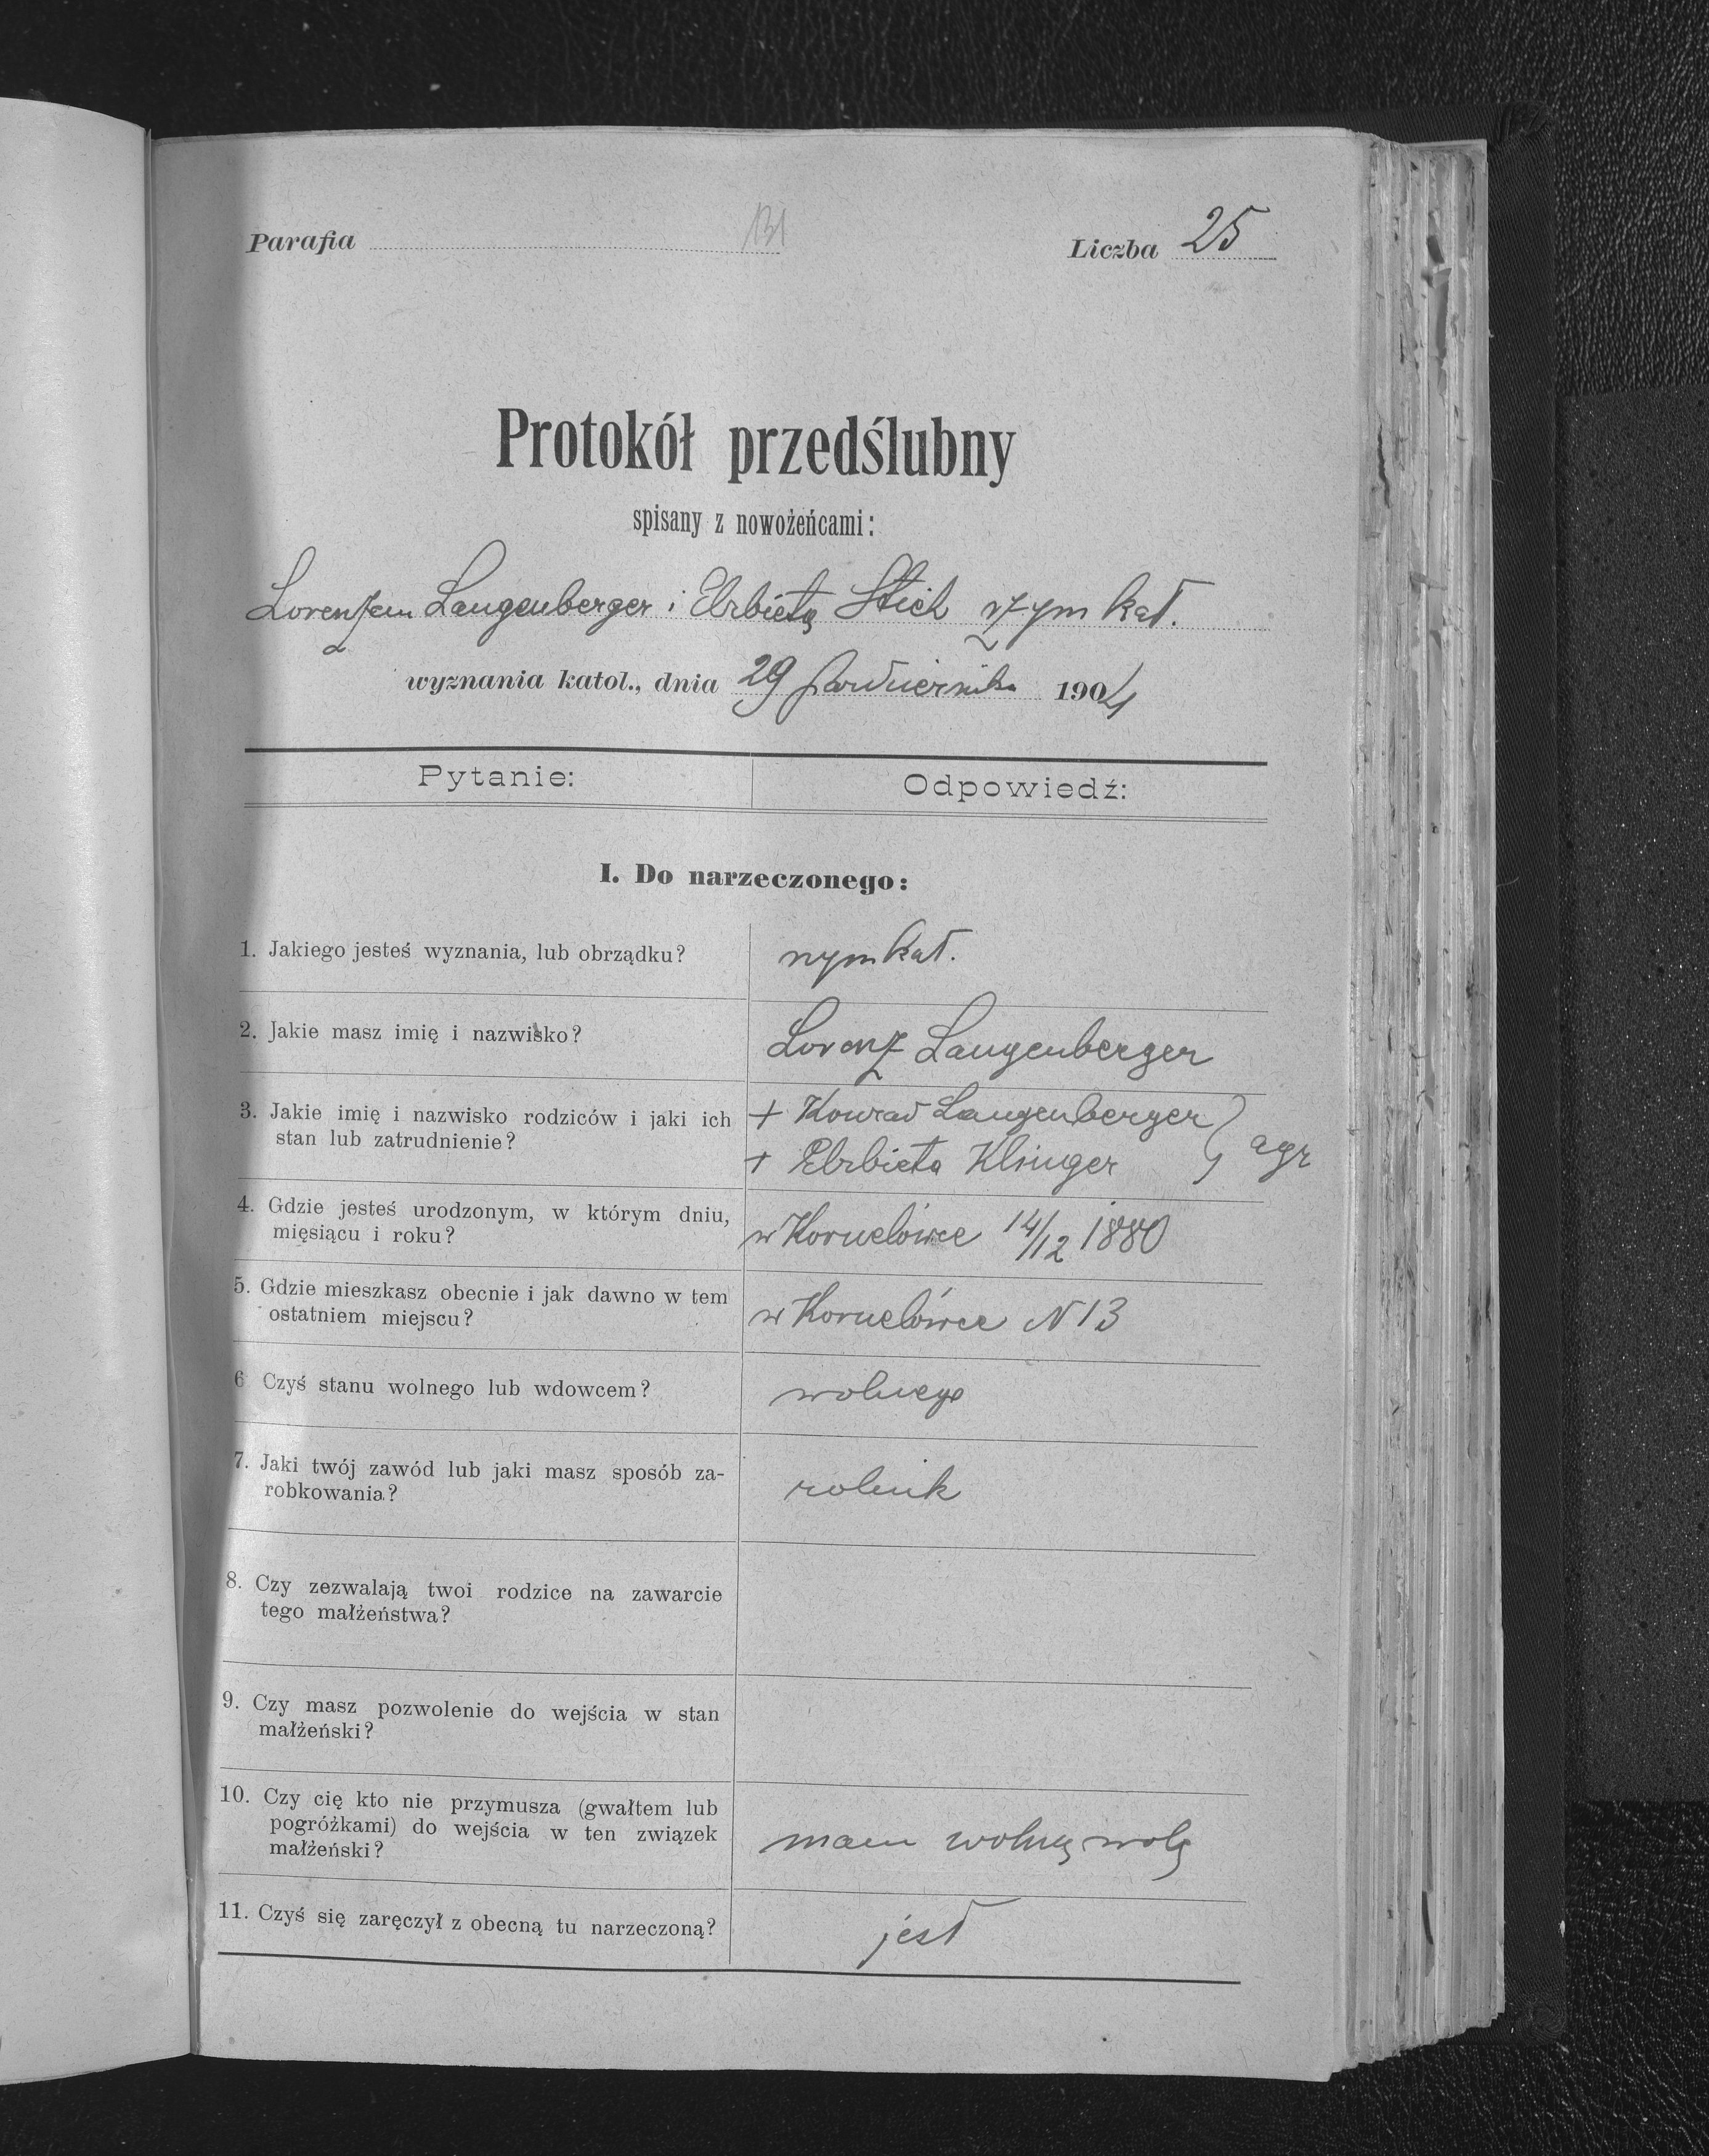 Parafia 131 Liczba 25
Protokół przedślubny
spisany z nowożeńcami:
Lorenzem Langenberger i Elzbietą Stich rzym kat.
wyznania katol., dnia 29 października 1904
Pytanie: Odpowiedź:
I. Do narzeczonego:
1. Jakiego jesteś wyznania, lub obrządku? rzym kat.
2. Jakie masz imię i nazwisko? Lorenz Langenberger
3. Jakie imię i nazwisko rodziców i jaki ich + Konrad Langenberger
stan lub zatrudnienie? + Elzbieta Klinger } agr
4. Gdzie jesteś urodzonym, w którym dniu,
mięsiącu i roku? w Kornelówce 14/12 1880
5. Gdzie mieszkasz obecnie i jak dawno w tem
ostatniem miejscu? w Kornelówce N 13
6 Czyś stanu wolnego lub wdowcem? wolnego
7. Jaki twój zawód lub jaki masz sposób za-
robkowania? rolnik
8. Czy zezwalają twoi rodzice na zawarcie
tego małżeństwa?
9. Czy masz pozwolenie do wejścia w stan
małżeński?
10. Czy cię kto nie przymusza (gwałtem lub
pogróżkami) do wejścia w ten związek mam wolną wolę
małżeński?
11. Czyś się zaręczył z obecną tu narzeczoną? jest